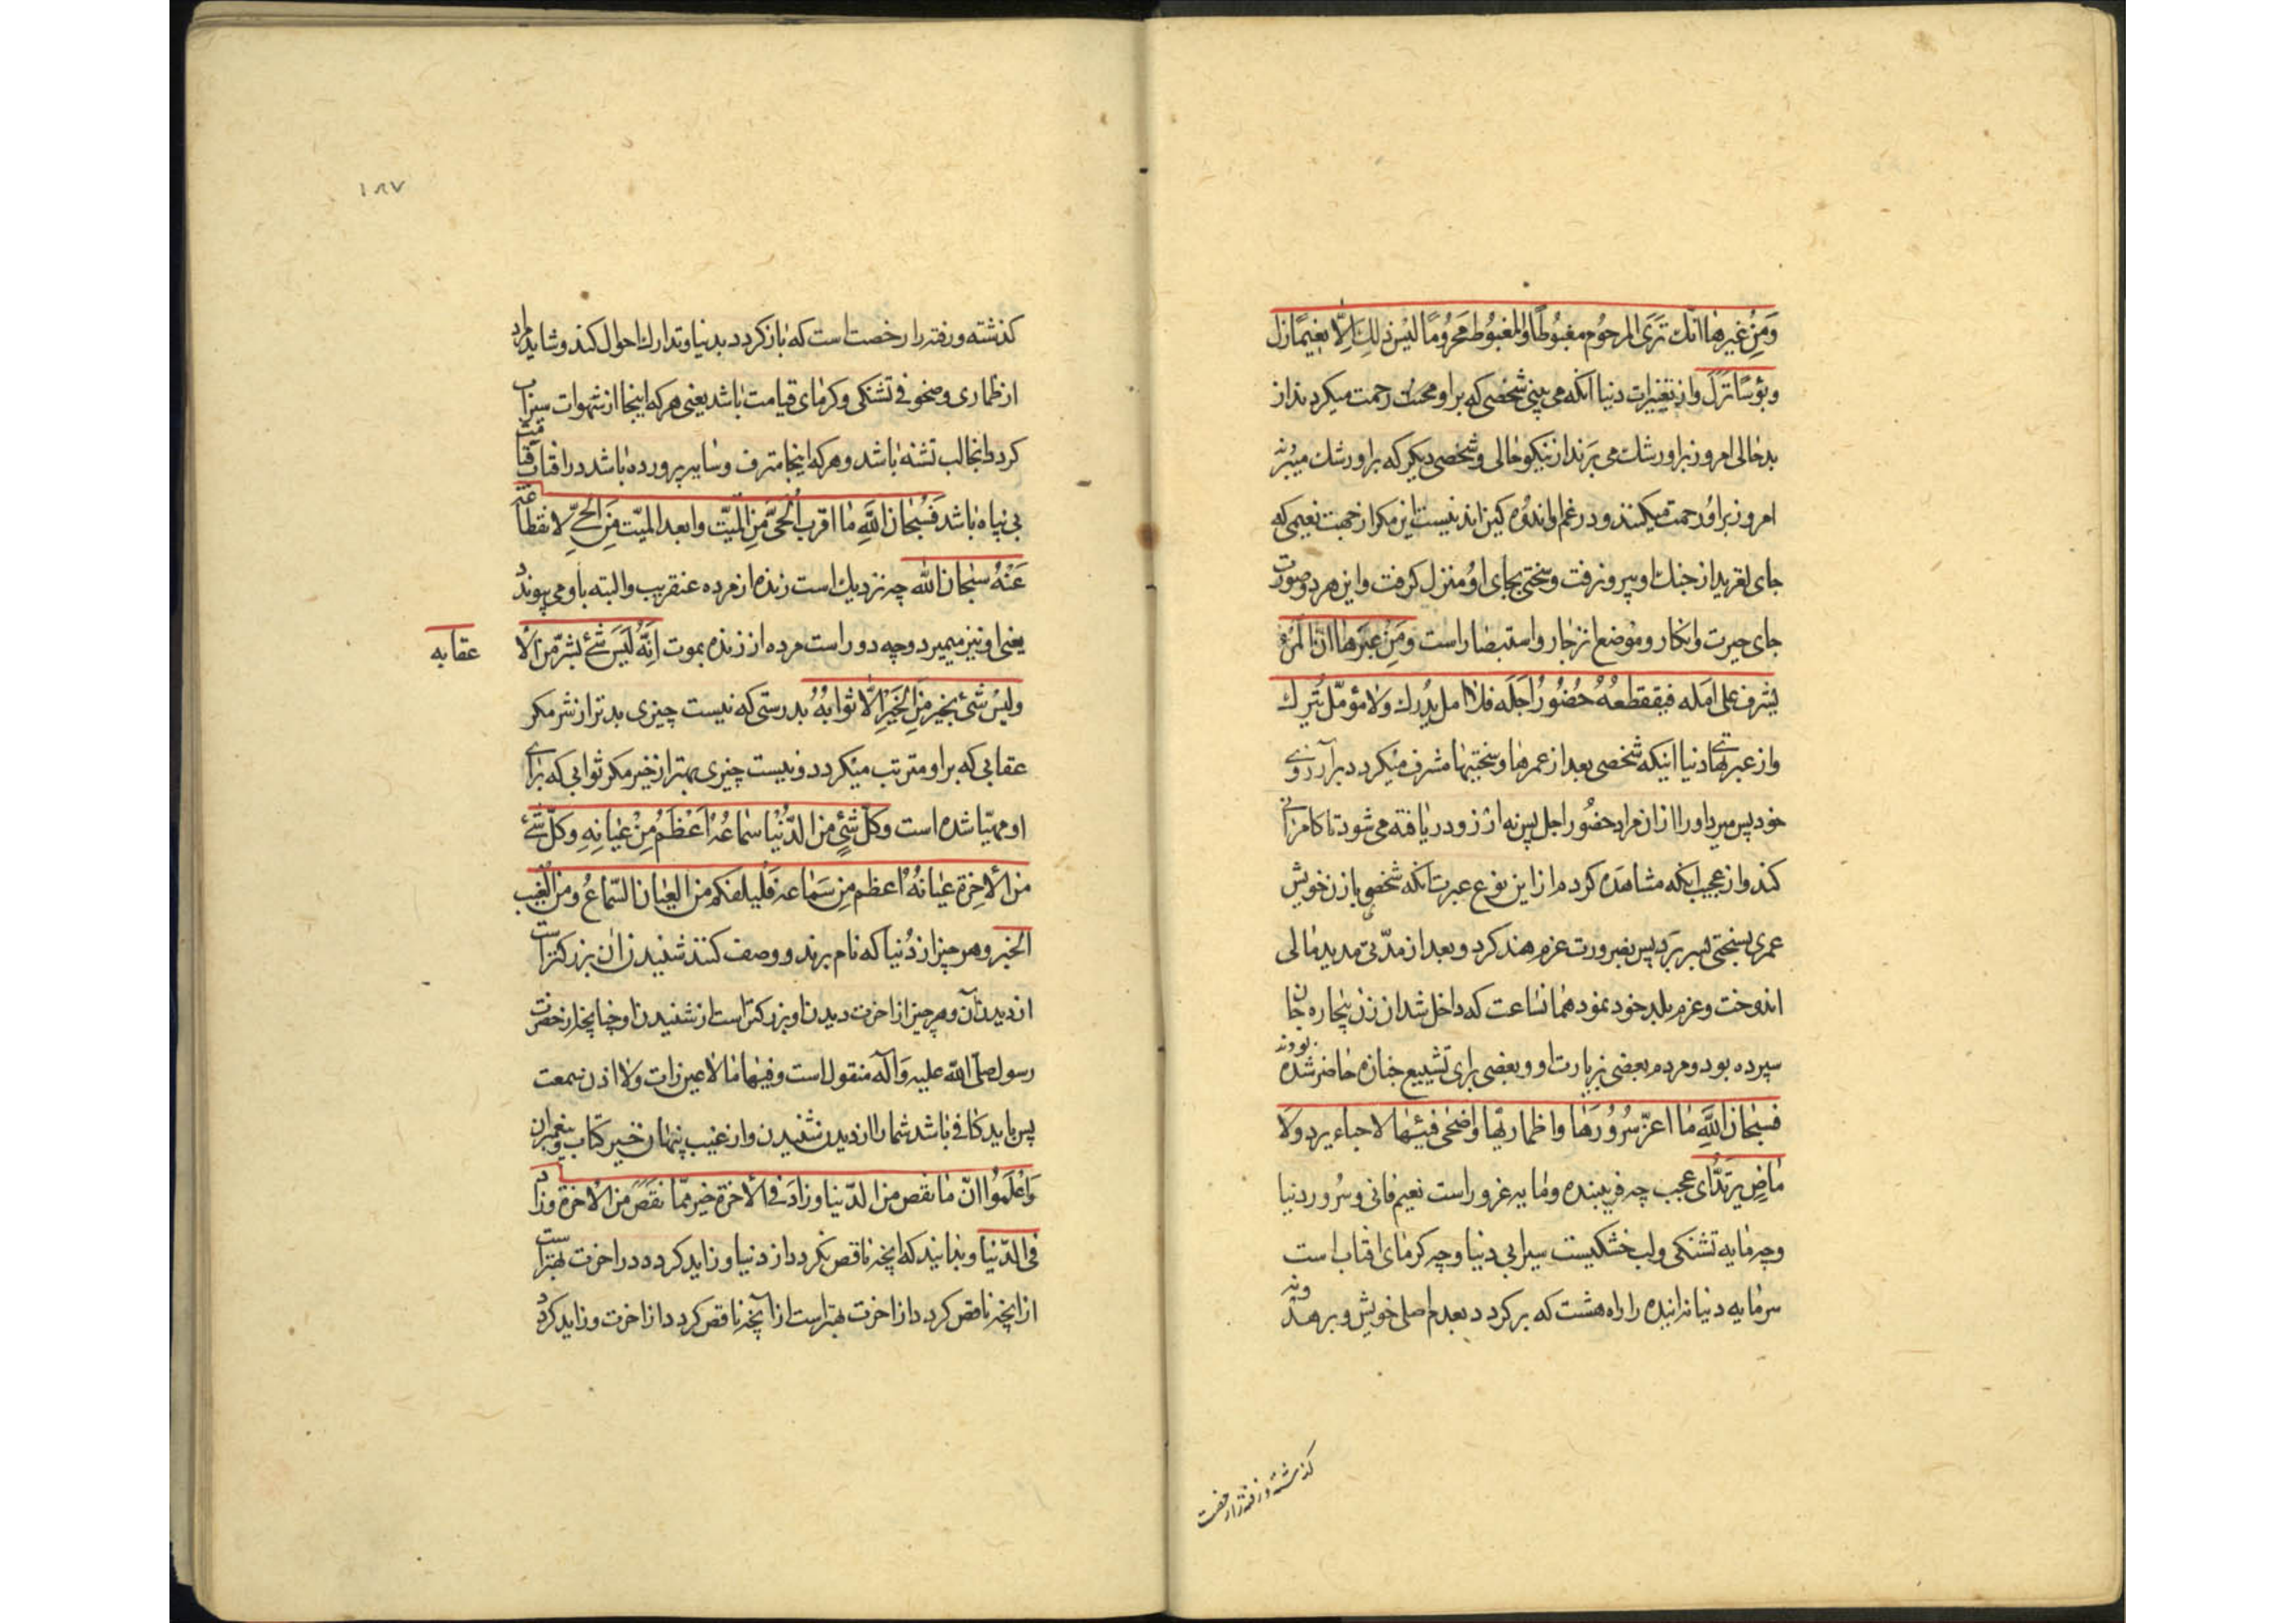 وَمِنْ غِيَرِهَا انّك تَرَى المرحُوم مغبُوطًا والمغبُوط مَحرُومًا ليْسَ ذلِكَ اِلّا نعيمًا زل
وبؤسًا نَزَلَ واز تغيرات دنيا انكه می بینی شخصی که براو محنت رحمت میکردند از
بدحالی امروز براو رشك می برند از نیکو حالی و شخصی دیکر که براو رشك میبرند
امروز براو رحمت میکنند و در غم و اندوه کین اند نیست این مکر از جهت نعیمی که
جای لغزید از جنك او بیرون رفت و سختی بجای او منزل کرفت و این هر دو صورت
جای حیرت و انکار و موضع انزجار و استبصار است ومَنِ عِبَرِهَا انّ المَرْءَ
یشرف علی امَله فیقتطعُهُ حُضُورُ اَجَلَه فلا امل یُدرك ولا مؤمّل یُترك
واز عبرتهای دنیا اینکه شخصی بعد از عمرها و سختیها مشرف میکردد بر آرزوی
خود پس میبرد او را از ان مراد حضور اجل پس نه ارزو دریافته می شود تا کامرانی
کند و از عجب انکه مشاهده کردم از این نوع عبرت انکه شخصی با زن خویش
عمری بسختی بسر برد پس بضرورت عزم هند کرد و بعد از مدّتی مدید مالی
اندوخت و عزم بلد خود نمود همانساعت که داخل شد ان زن بیچاره جان
سپرده بود و مردم بعضی بزیارت او و بعضی برای تشییع جنازه حاضر شده بودند
فسبحان اللّهِ مَا اعزّ سُرُورَهَا واظمأ ریّها واضحی فیئهَا لا جاء یرد ولا
مَاضٍ یَرتَدُّ ای عجب چه فریبنده و مایه غرور است نعیم فانی و سرور دنیا
وچه مایه تشنکی و لب خشکیست سیرابی دنیا و چه کرمای افتاب است
سرمایه دنیا نه اینده را راه هشت که برکردد بعدم اصلی خویش و برهد ونه
کذشته و رفته را رخصت
۱۸۷
کذشته و رفته را رخصت است که باز کردد بدنیا و تدارك احوال کند و شاید مراد
از ظماری و ضحو فئ تشنکی و کرمای قیامت باشد یعنی هر که اینجا از شهوات سیراب
کردد انجا لب تشنه باشد و هر که اینجا مترف و سایه پرورده باشد در افتاب قیامت
بی پناه باشد فَسُبحان اللّهِ مَا اقرب الحَیَّ مِنَ المیّت وابعد المیّت مِنَ الحَیِّ لانقطاعه
عَنْهُ سبحان اللّه چه نزدیك است زنده از مرده عنقریب و البته باو می پیوندد
یعنی او نیز میمیرد و چه دور است مرده از زنده بموت اِنّهُ لَیَسَ شئ بشرّ من الّا
عقابه
ولیْسَ شئ بخیر مِنَ الخَیْرِ الّا ثوابُهُ بدرستی که نیست چیزی بدتر از شر مکر
عقابی که براو مترتب میکردد و نیست چیزی بهتر از خیر مکر ثوابی که برای
او مهیّا شده است وکلّ شئٍ من الدّنْیا سَماعُهُ اَعْظَمُ مِنْ عِیَانِهِ وکلّ شئ
من الاخِرَة عیَانُهُ اعظم مِن سَماعه فَلیکفکم من العِیَان السّماعُ ومن الغَیب
الخبر و هر چیز از دنیا که نام برند و وصف کنند شنیدن ان بزرکتر است
از دیدن آن و هر چیز از اخرت دیدن او بزرکتر است از شنیدن او چنانچه از حضرت
رسول صلّی اللّه علیه وآله منقول است وفیها ما لا عین رات ولا اذن سمعت
پس باید کافی باشد شما را از دیدن شنیدن و از غیب پنهان خبر کتاب و پیغمبران
وَاعْلَمُوا انّ مَا نقص من الدّنیا وزادَ فی الاخرة خیر ممّا نَقَصَ من الاخرة وزاد
فی الدّنیا و بدانید که انچه ناقص بکردد از دنیا و زاید کردد در اخرت بهتر است
از انچه ناقص کردد از اخرت بهتر است از آنچه ناقص کردد از اخرت و زاید کردد